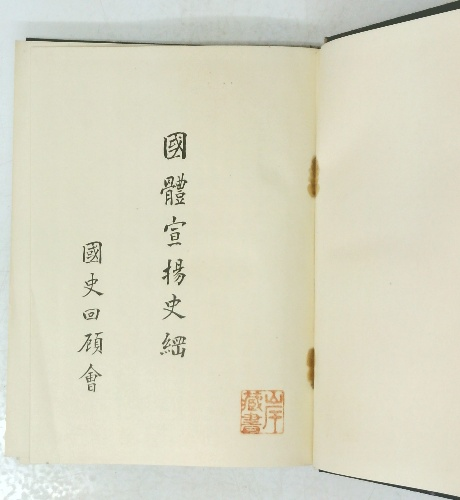 國體宣揚史綱
國史回顧會
岸
藏書